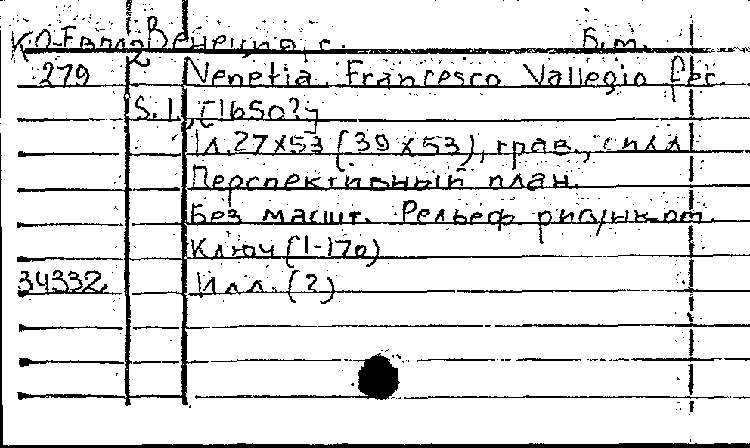 К 0-Евл2 Венеция, г. Б.м.
279 Venetia. Francesco Vallegio fec.
S. l., [1650?]
1 л. 27x53 (39x53), грав.,
Перспективный план.
Без масшт. Рельеф рисунком.
Ключ (1-170)
34332 Илл. (2)